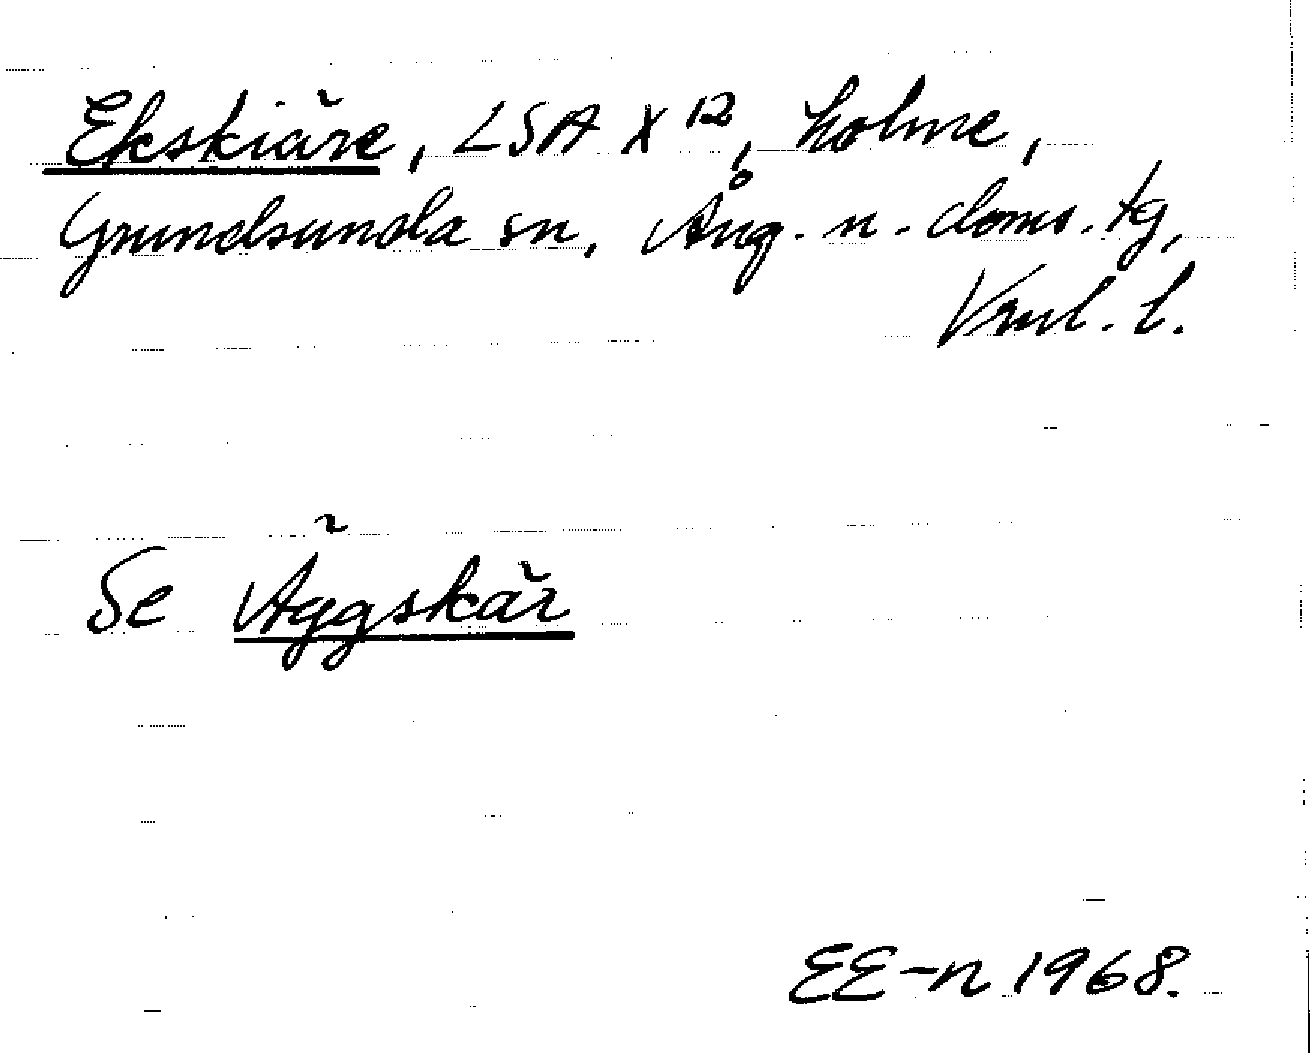 Ekskiäre, LSA X 12, holme,
Grundsunda sn, Ång. n. doms. tg,
Vnrl. l.
Se Äggskär
EE-n 1968.